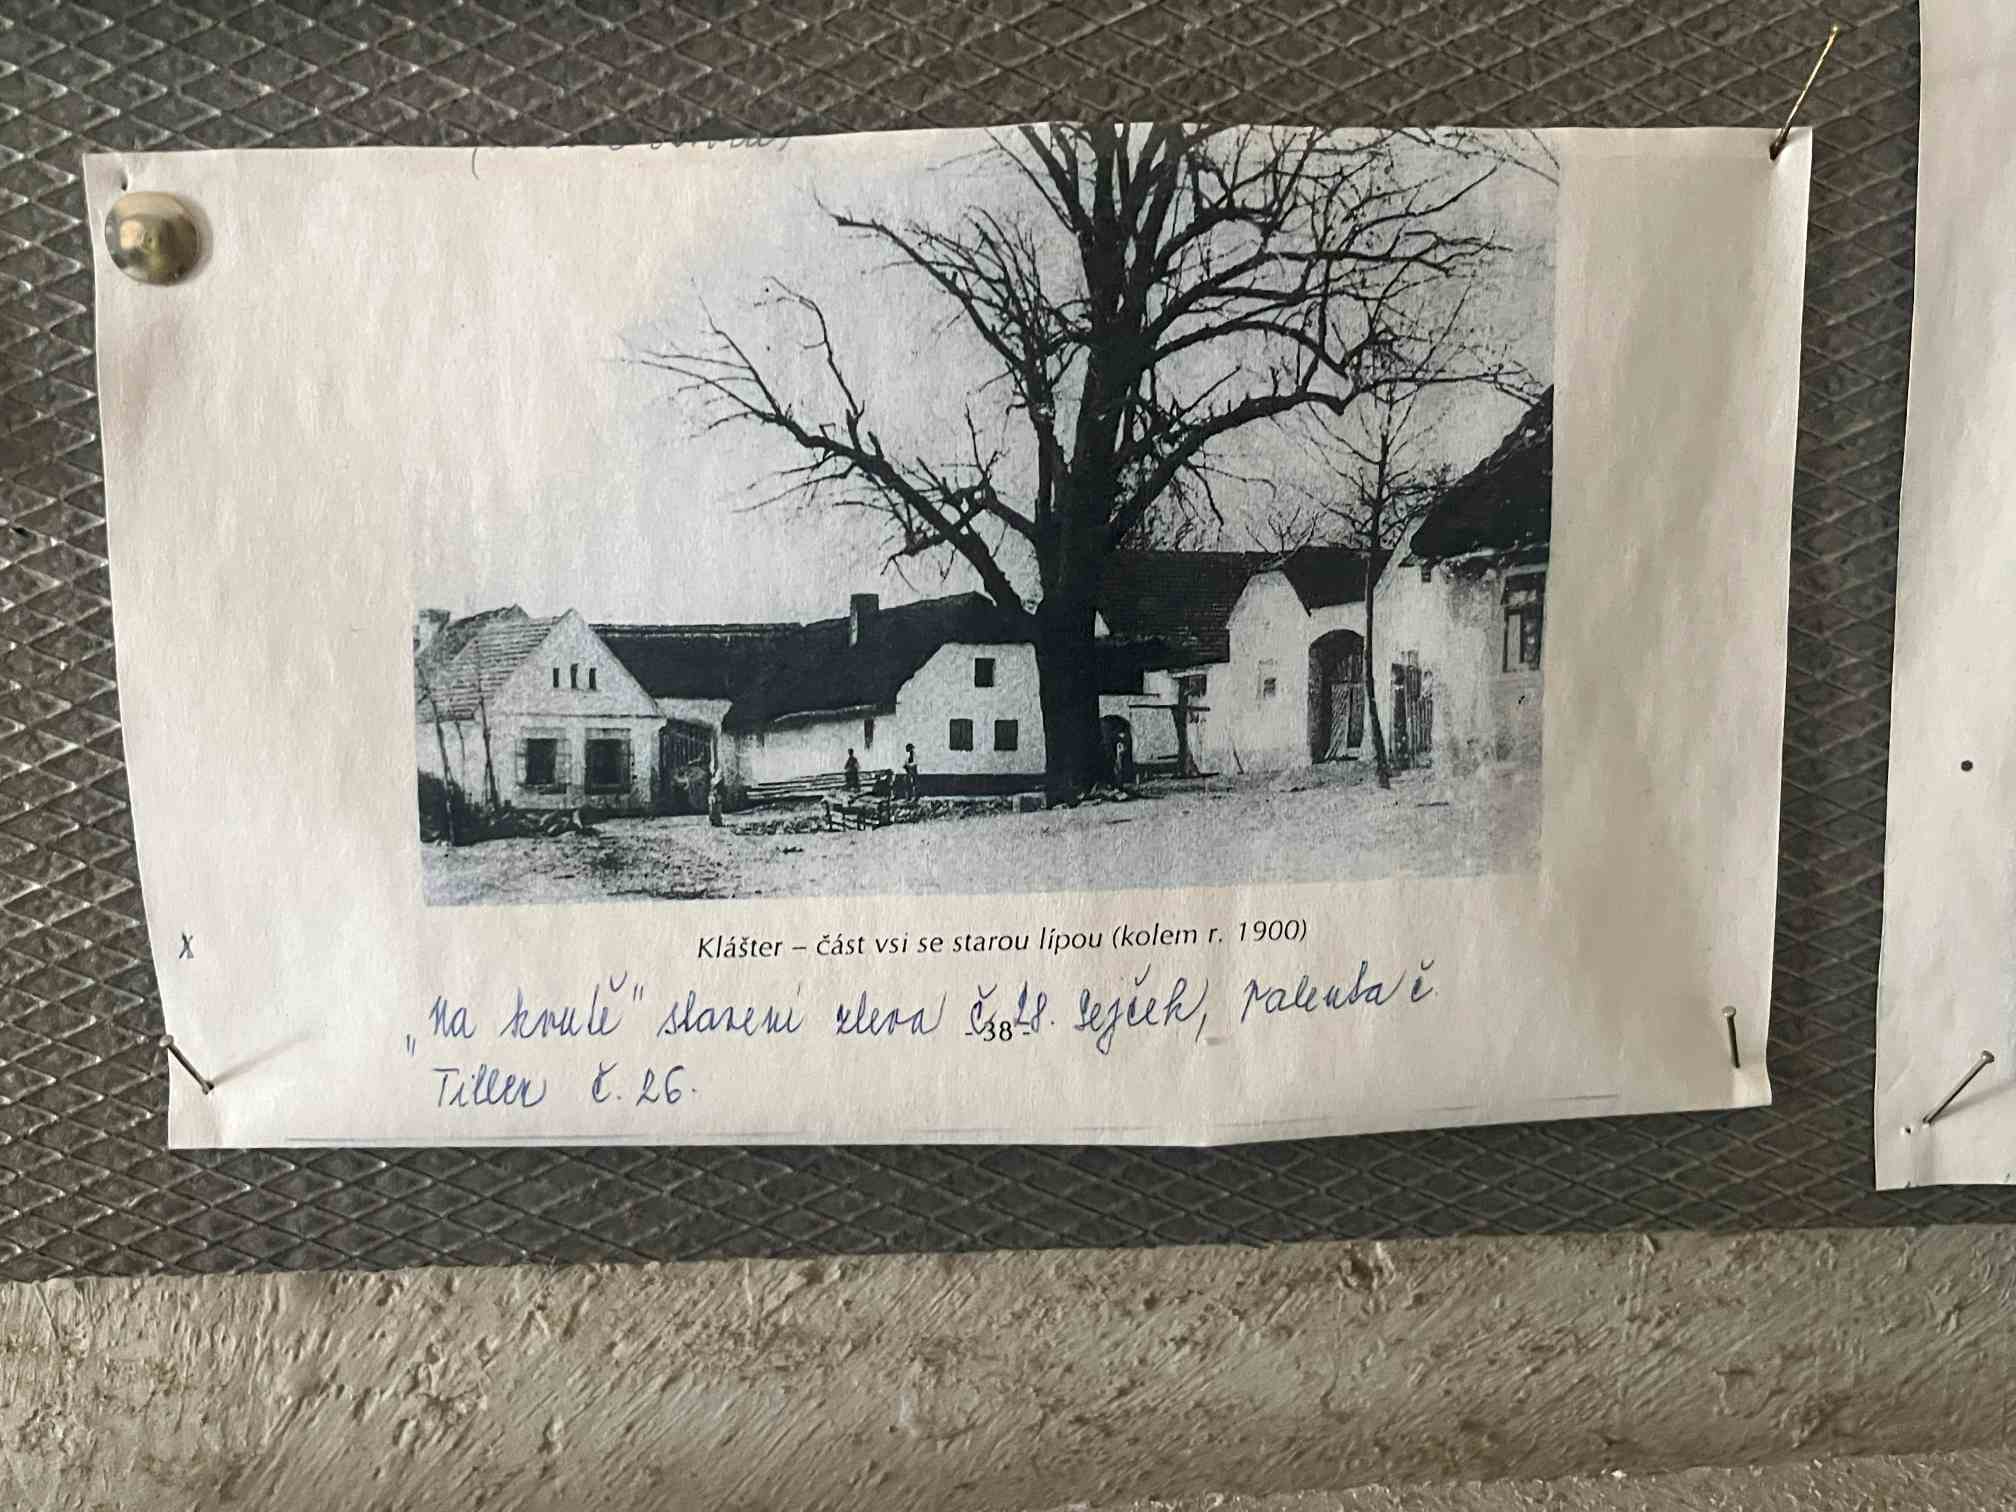 Klášter – část vsi se starou lípou (kolem r. 1900)
x
„Na hrutě" stavení zleva č. 28. Ježek, Palenta č.
-38-
Tiller č. 26.